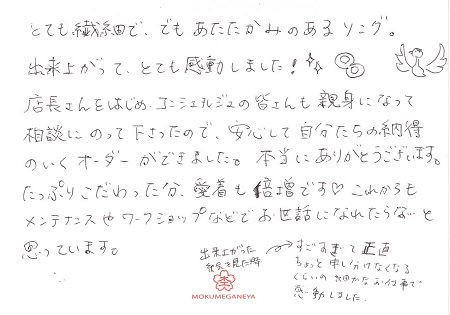 とても繊細で、でもあたたかみのあるリング。
出来上がって、とても感動しました!
店長さんをはじめ、コンシェルジュの皆さんも親身になって
相談にのって下さったので、安心して自分たちの納得
のいくオーダーができました。本当にありがとうございます。
たっぷりこだわった分、愛着も倍増です♡これからも
メンテナンスやワークショップなどでお世話になれたらな〜と
思っています。
出来上がった
を見た時
すごすぎて正直
ちょっと申し分けなくなる
くらいの細かなお仕事で
感動しました。
MOKUMEGANEYA